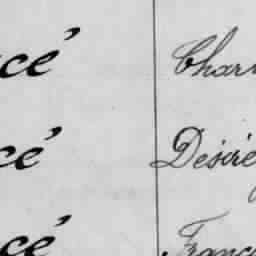 cé Char
cé Désiré
cé Franc